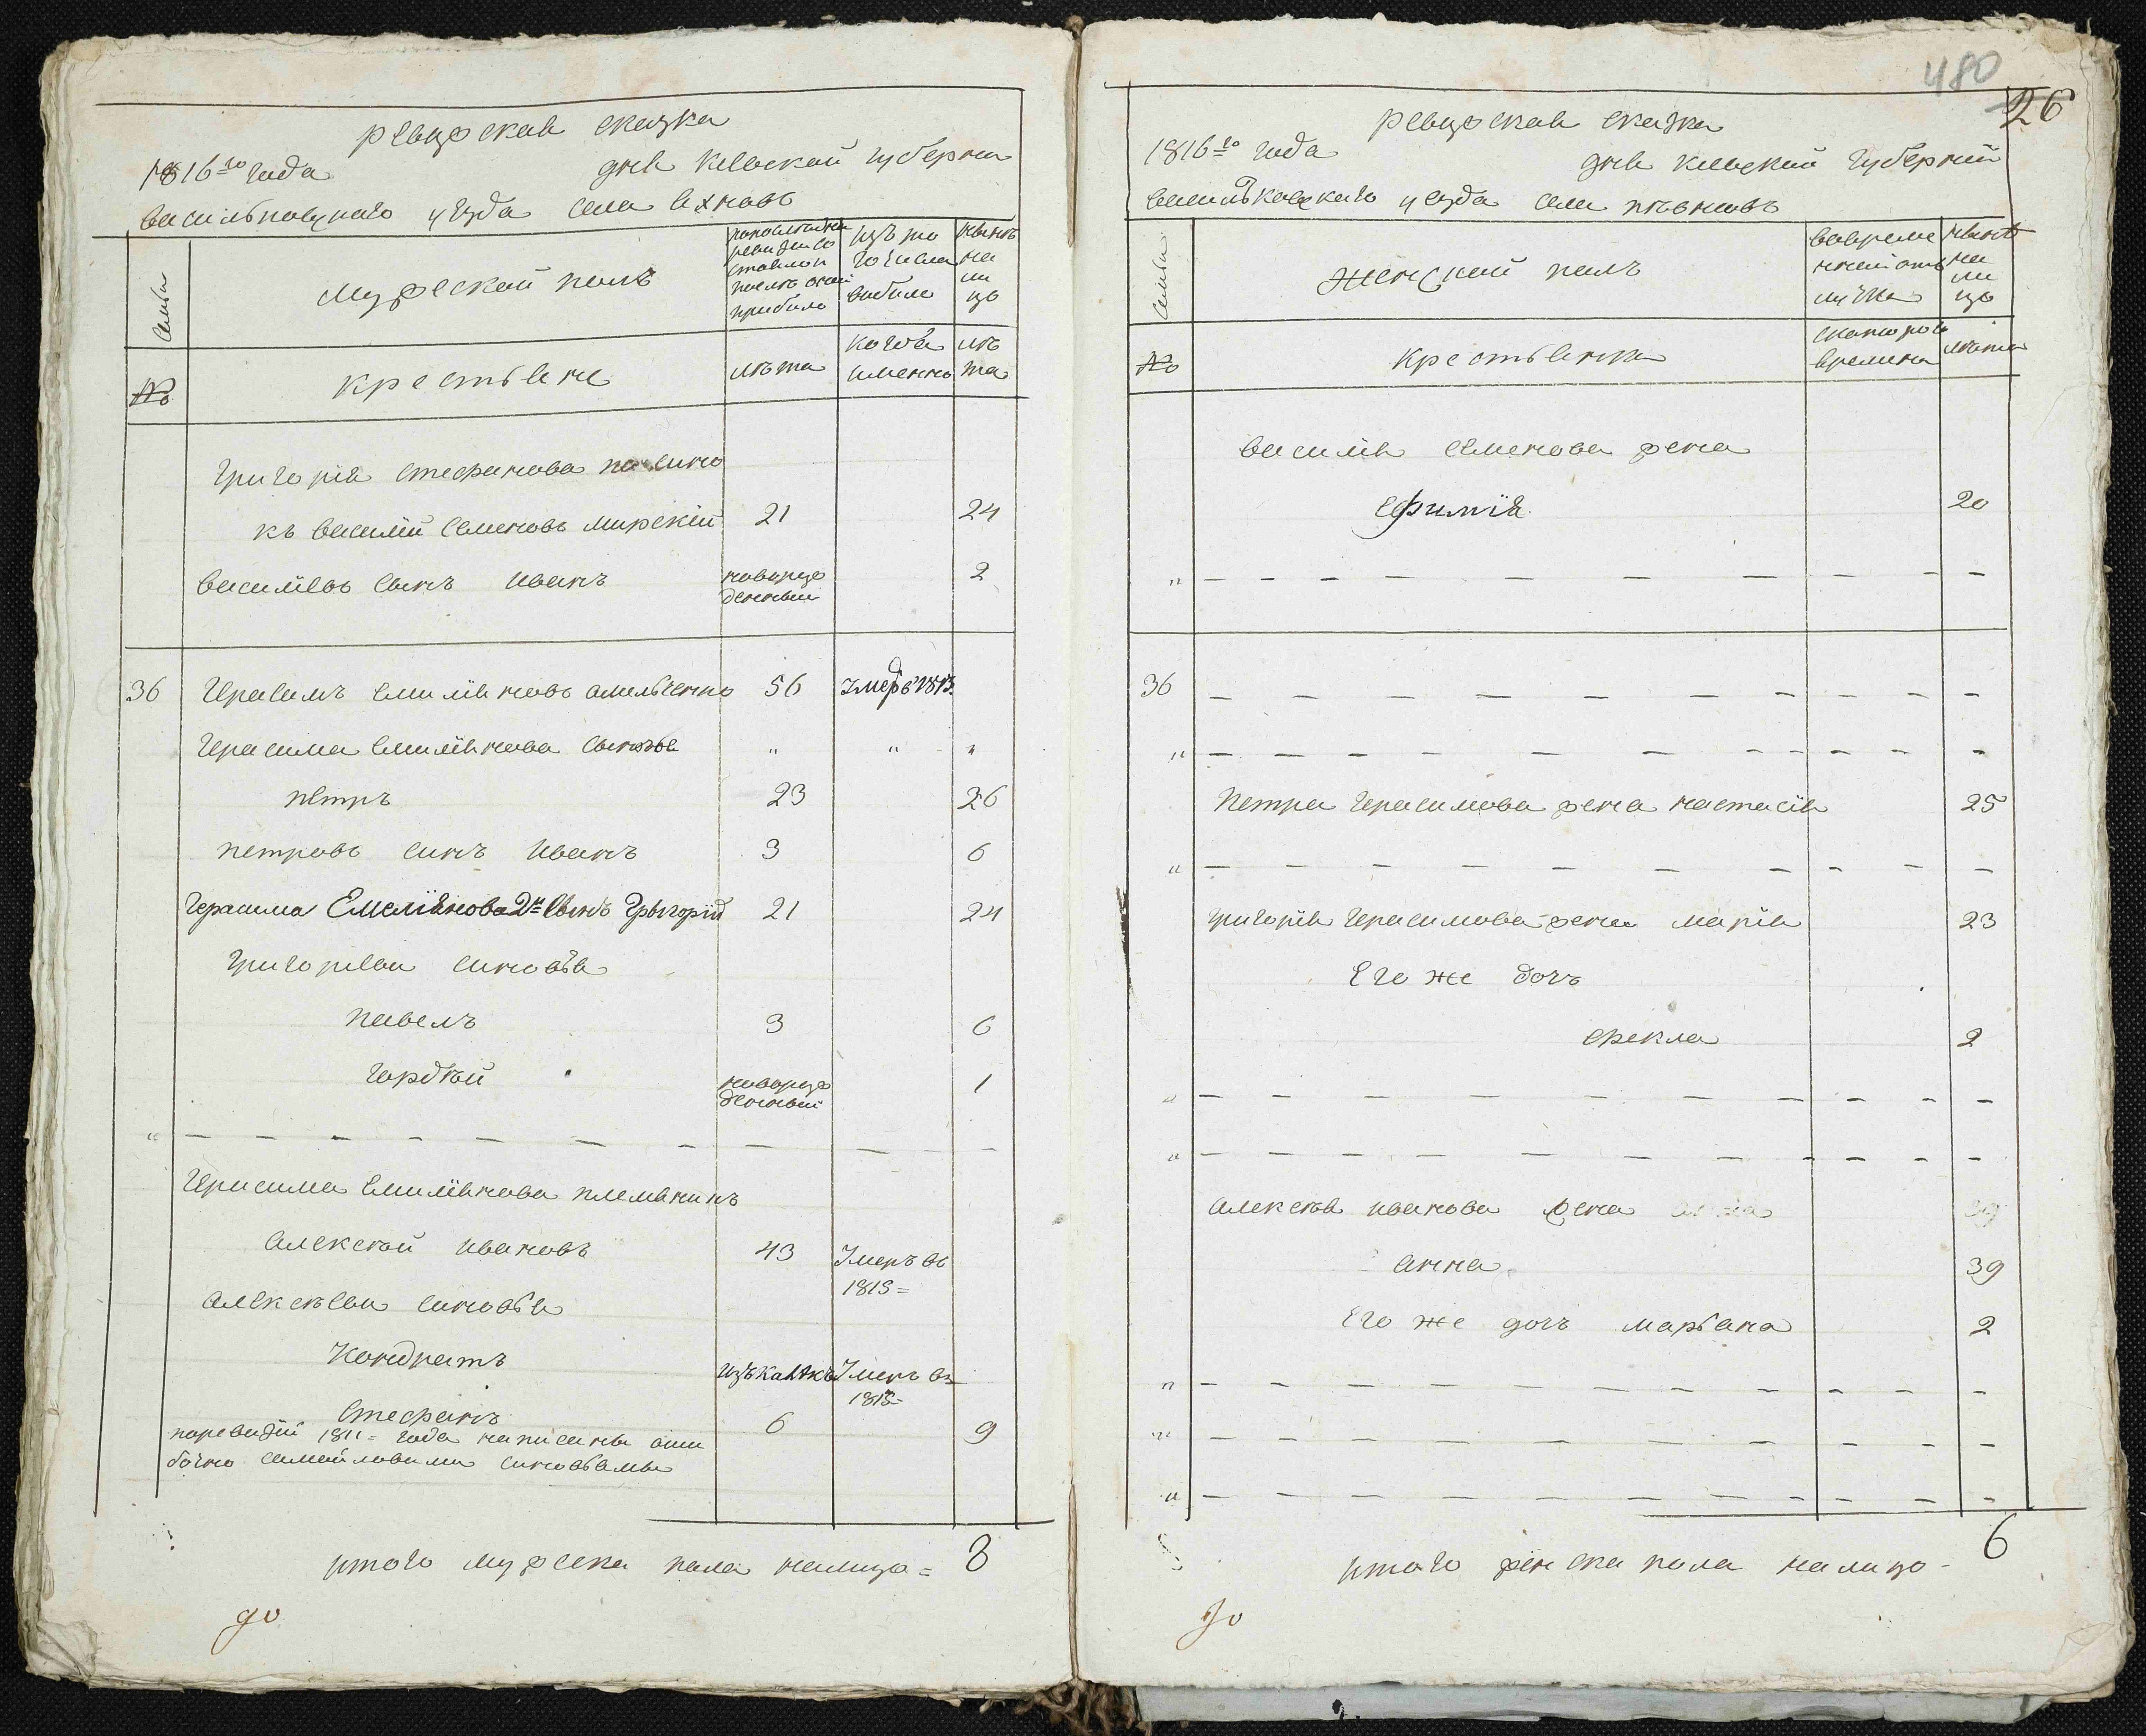 ревизская сказка
1816го года
дня киевской губернии
васильковскаго уезда села яхновъ
Семьи
мужеской полъ
изъ то
го числа
выбыло
нынѣ
на
ли
цо
№
крестьяне
лѣта
когда
именно
лѣ
та
григорія стефанова пасино
къ василій семеновъ мирскій 21 24
василіевъ сынъ иванъ новорож
денный 2
36 герасимъ емиліяновъ омельченко 56 умеръ в 1813
герасима емиліянова сыновья " " "
петръ 23 26
петровъ синъ иванъ 3 6
герасима Емеліянова 2й сынъ Грыгорій 21 24
григоріеви синовья
павелъ 3 6
гордѣй новорож
денный 1
" — — — — — — — — — — —
герасима емиліянова племяникъ
алексѣй ивановъ 43 Умеръ въ
1815
алексѣеви синовья
Кондратъ Умеръ въ
1815
стефанъ 6 9
по ревизіи 1811 года написаны оши
бочно самойловими синовьямы
итого мужеска пола налицо = 8
до
480
26
ревизская сказка
1816го года
дня киевской губерніи
васильковскаго уезда села
Семьи
женский полъ
вовреме
нной отъ
лучке
нынѣ
на
ли
цо
№
крестьянки
скоторого
времени
лѣта
василія семенова жена
ефимія 20
" — — — — — — — — — —
36 — — — — — — — — — —
" — — — — — — — — — —
петра герасимова жена настасія 25
" — — — — — — — — — —
григорія герасимова жена марія 23
Его же дочъ
фекла 2
" — — — — — — — — — —
" — — — — — — — — — —
алексѣя иванова жена
анна 39
Его же дочъ марьяна 2
" — — — — — — — — — —
" — — — — — — — — — —
" — — — — — — — — — —
итого женска пола налицо - 6
до